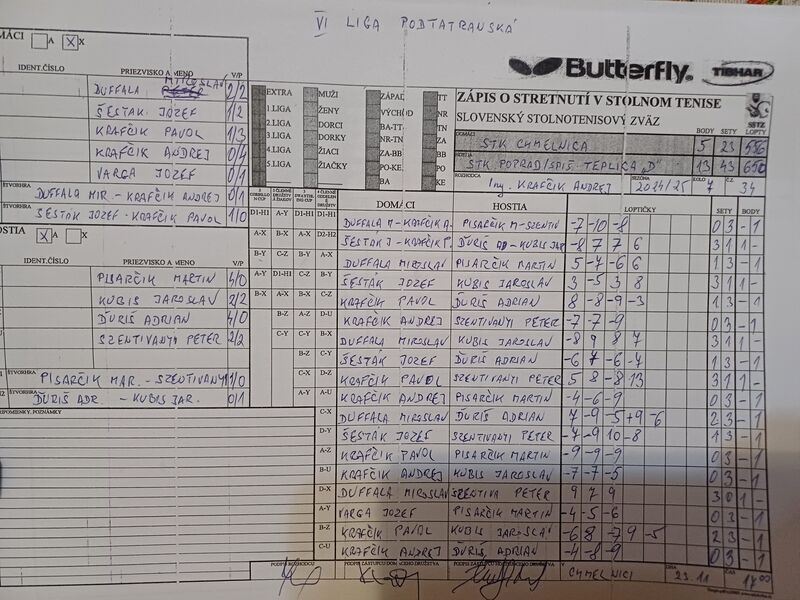 VI LIGA PODTATRANSKÁ
MÁCI A X X
IDENT.ČÍSLO PRIEZVISKO A MENO V/P
DUFFALA MIROSLAV 2/2
ŠESTÁK JOZEF 1/2
KRAFČIK PAVOL 1/3
KRAFČIK ANDREJ 0/4
VARGA JOZEF 0/1
ŠTVORHRA DUFFALA MIR. - KRAFČIK ANDREJ 0/1
ŠESTÁK JOZEF - KRAFČIK PAVOL 1/0
OSTIA X A X
IDENT.ČÍSLO PRIEZVISKO A MENO V/P
PISARČIK MARTIN 4/0
KUBIS JAROSLAV 2/2
ĎURIŠ ADRIAN 4/0
SZENTIVANYI PETER 2/2
ŠTVORHRA PISARČIK MAR. - SZENTIVANYI 1/0
ŠTVORHRA ĎURIŠ ADR. - KUBIS JAR. 0/1
POZNÁMKY
Butterfly TIBHAR
EXTRA MUŽI ZÁPAD TT
1.LIGA ŽENY VÝCHOD NR
2.LIGA DORCI BA-TT TN
3.LIGA DORKY NR-TN ZA
4.LIGA ŽIACI ZA-BB BB
5.LIGA ŽIAČKY PO-KE PO
BA KE
ZÁPIS O STRETNUTÍ V STOLNOM TENISE
SLOVENSKÝ STOLNOTENISOVÝ ZVÄZ
SSTZ
BODY SETY LOPTY
DOMÁCI STK CHMELNICA 5 23
HOSTIA STK POPRAD/SPIŠ. TEPLICA "D" 13 43
ROZHODCA Ing. KRAFČIK ANDREJ SEZÓNA 2024/25 KOLO 7 Č.
DOMÁCI HOSTIA LOPTIČKY SETY BODY
D1-H1 A-Y D1-H1 DUFFALA M - KRAFČIK A. PISARČIK M - SZENTIV -7 -10 -8 0 3 - 1
A-X B-X ŠESTÁK J - KRAFČIK P. ĎURIŠ AD - KUBIS JAR -8 7 7 6 3 1 1 -
B-Y C-Z A-X DUFFALA MIROSLAV PISARČIK MARTIN 5 -7 -6 -6 1 3 - 1
A-Y D1-H1 B-Y ŠESTÁK JOZEF KUBIS JAROSLAV 3 -5 3 8 3 1 1 -
B-X A-X C-Z KRAFČIK PAVOL ĎURIŠ ADRIAN 8 -8 -9 -3 1 3 - 1
B-Z D-U KRAFČIK ANDREJ SZENTIVANYI PETER -7 -7 -9 0 3 - 1
C-Y B-X DUFFALA MIROSLAV KUBIS JAROSLAV -8 9 8 7 3 1 1 -
B-Y C-Z ŠESTÁK JOZEF ĎURIŠ ADRIAN -6 7 -6 -4 1 3 - 1
C-X D-Z KRAFČIK PAVOL SZENTIVANYI PETER 5 8 -8 13 3 1 1 -
A-Y A-U KRAFČIK ANDREJ PISARČIK MARTIN -4 -6 -9 0 3 - 1
C-X DUFFALA MIROSLAV ĎURIŠ ADRIAN 7 -9 -5 +9 -6 2 3 - 1
D-Y ŠESTÁK JOZEF SZENTIVANYI PETER -7 -9 10 -8 1 3 - 1
A-Z KRAFČIK PAVOL PISARČIK MARTIN -9 -9 -9 0 3 - 1
B-U KRAFČIK ANDREJ KUBIS JAROSLAV -7 -7 -5 0 3 - 1
D-X DUFFALA MIROSLAV SZENTIVA PETER 9 7 9 3 0 1 -
A-Y VARGA JOZEF PISARČIK MARTIN -4 -5 -6 0 3 - 1
B-Z KRAFČIK PAVOL KUBIS JAROSLAV -6 8 -7 9 -5 2 3 - 1
C-U KRAFČIK ANDREJ ĎURIŠ ADRIAN -4 -8 -9 0 3 - 1
PODPIS ROZHODCU PODPIS ZÁSTUPCU DOMÁCEHO DRUŽSTVA V CHMELNICI DŇA 23.11 ČAS 17.00